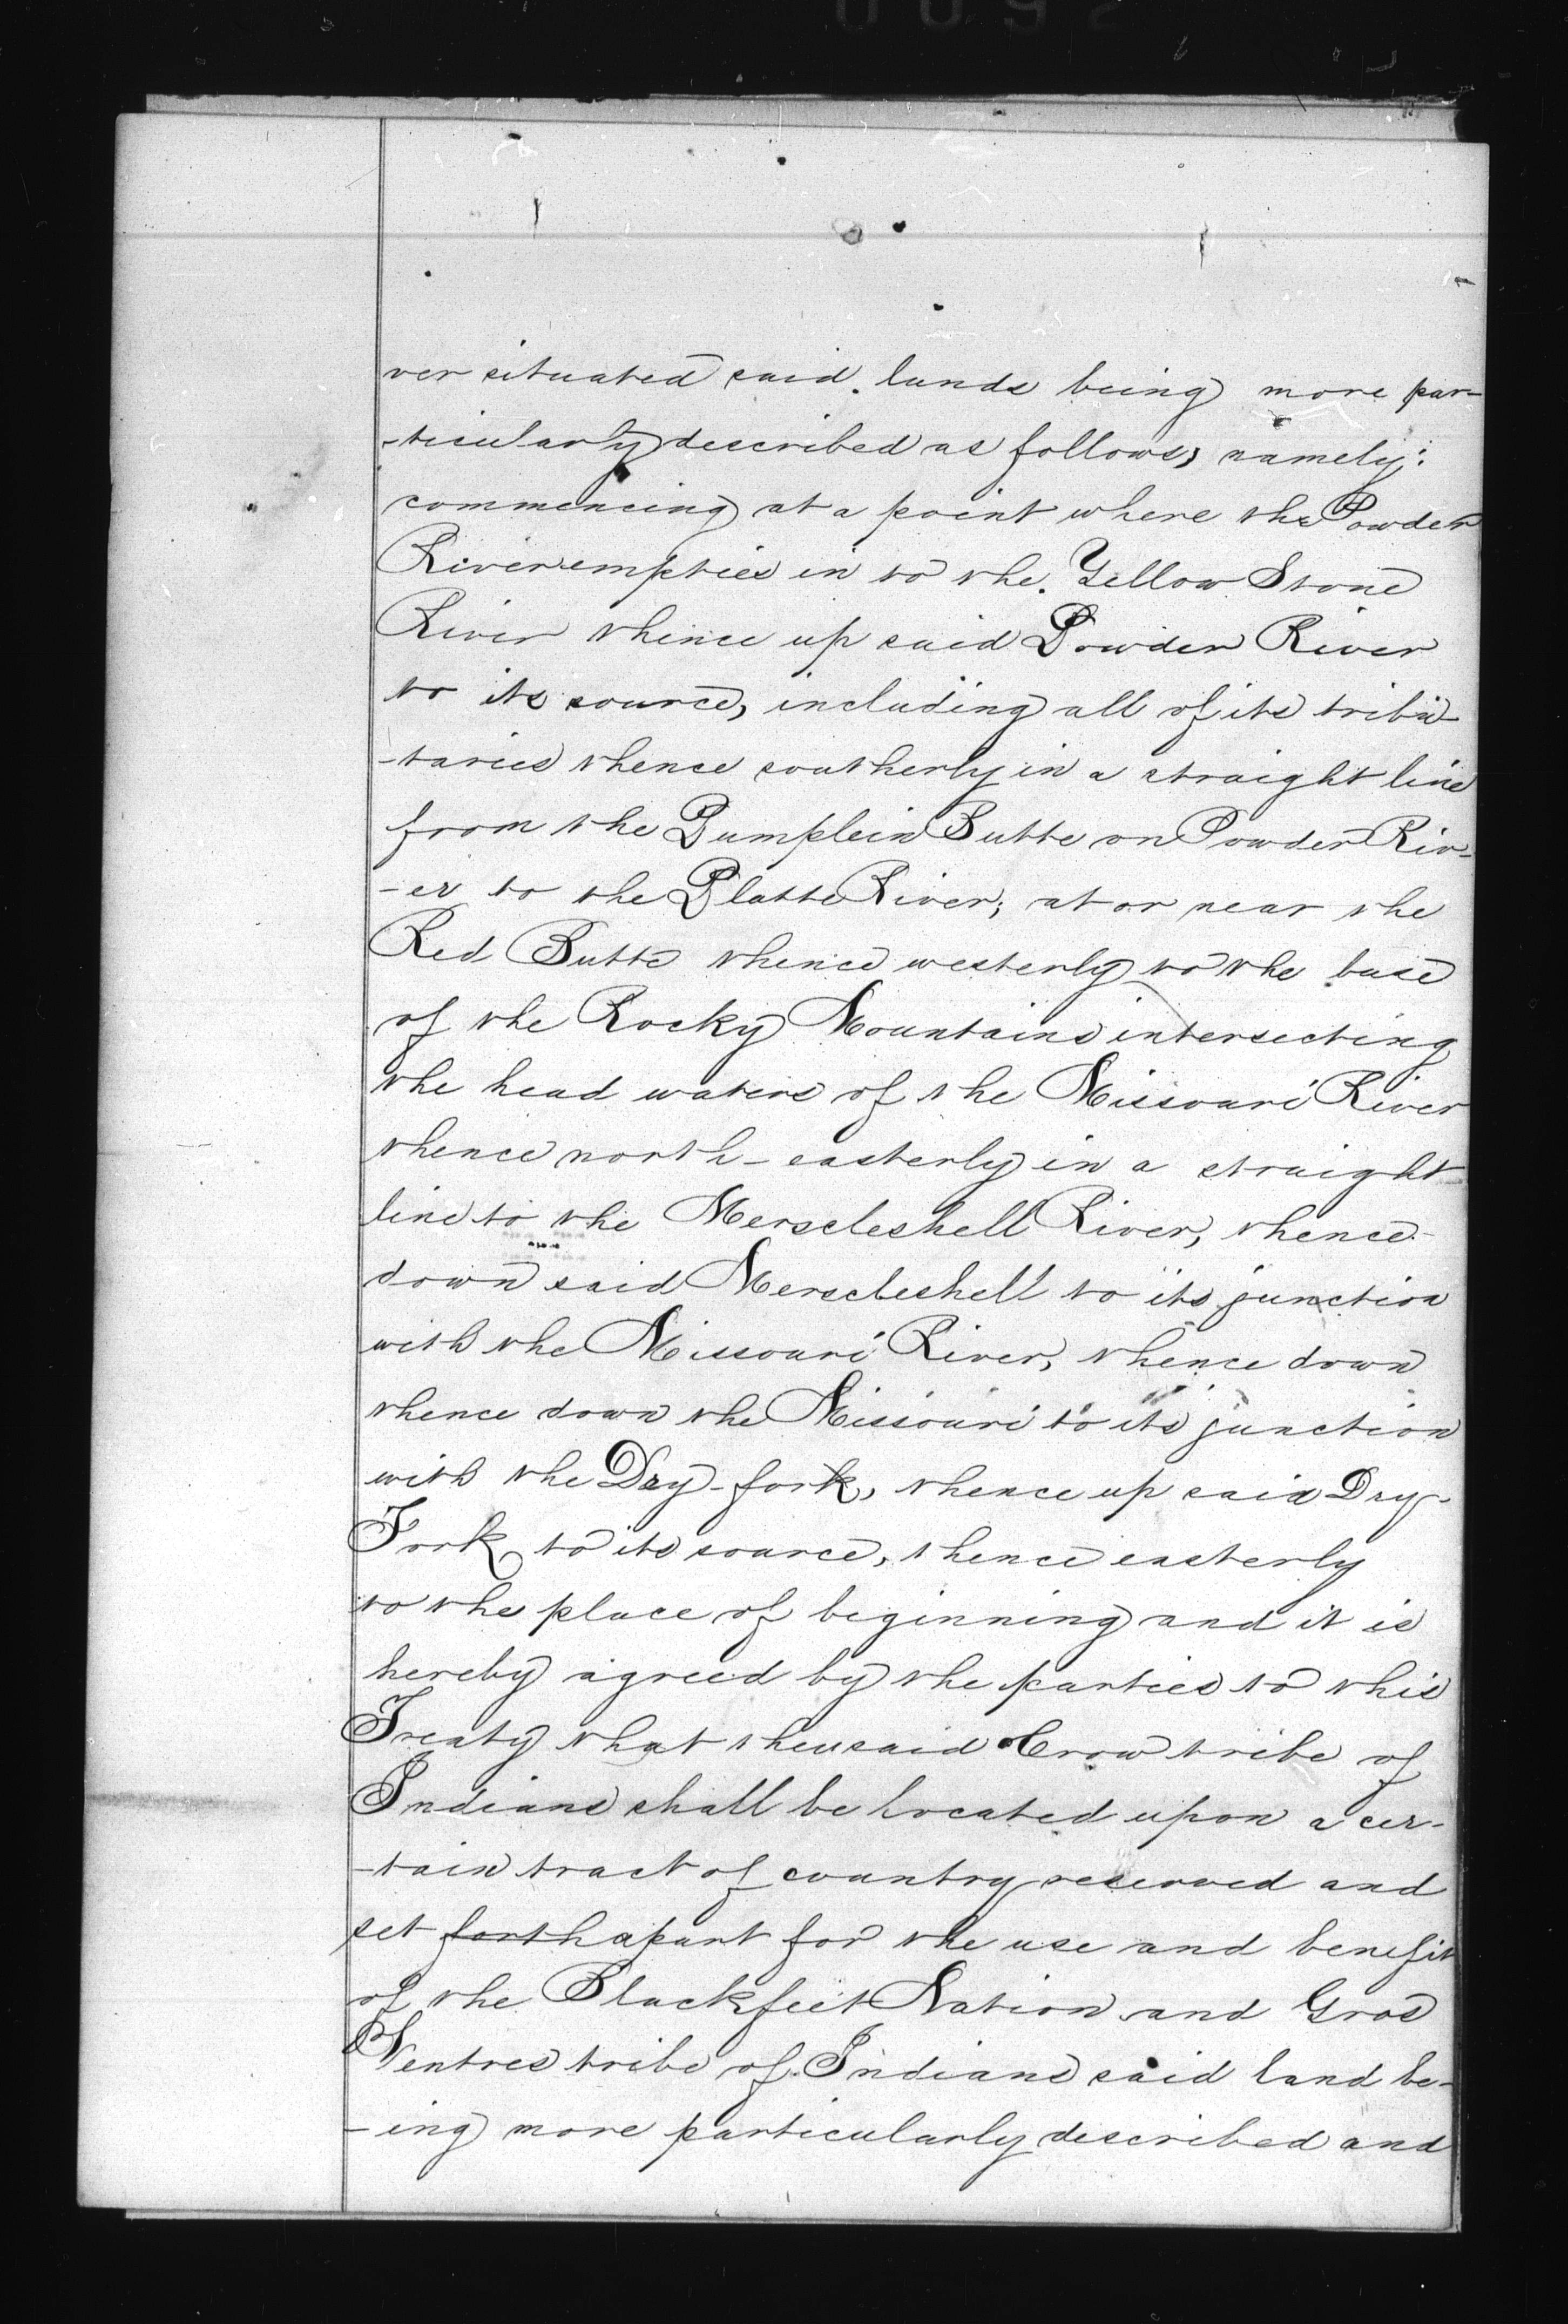 ver situated said lands being more par-
-ticularly described as follows, namely:
commencing at a point where the Powder
River empties in to the Yellow Stone
River thence up said Powder River
to its source, including all of its tribu-
-taries thence southerly in a straight line
from the Pumplein Butte on Powder Riv-
-er to the Platte River, at or near the
Red Butte thence westerly to the base
of the Rocky Mountains intersecting
the head waters of the Missouri River
thence north-easterly in a straight
line to the Merscleshell River, thence
down said Merscleshell to its junction
with the Missouri River, thence down
thence down the Missouri to its junction
with the Dry-fork, thence up said Dry-
Fork to its source, thence easterly
to the place of beginning and it is
hereby agreed by the parties to this
Treaty that the said Crow tribe of
Indians shall be located upon a cer-
-tain tract of country reserved and
set forth apart for the use and benefit
of the Blackfeet Nation and Gros
Ventres tribe of Indians said land be-
-ing more particularly described and